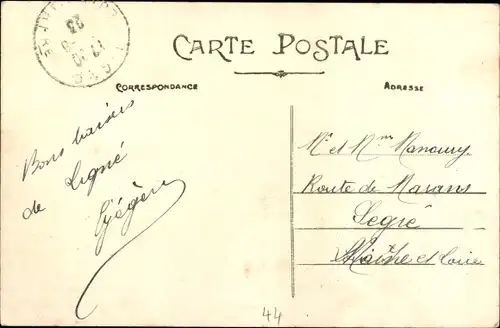 CARTE POSTALE
CORRESPONDANCE
ADRESSE
Bons baisers
de Ligné
Mr et Mme Manoury
Route de Marans
Segré
Maine et Loire
44